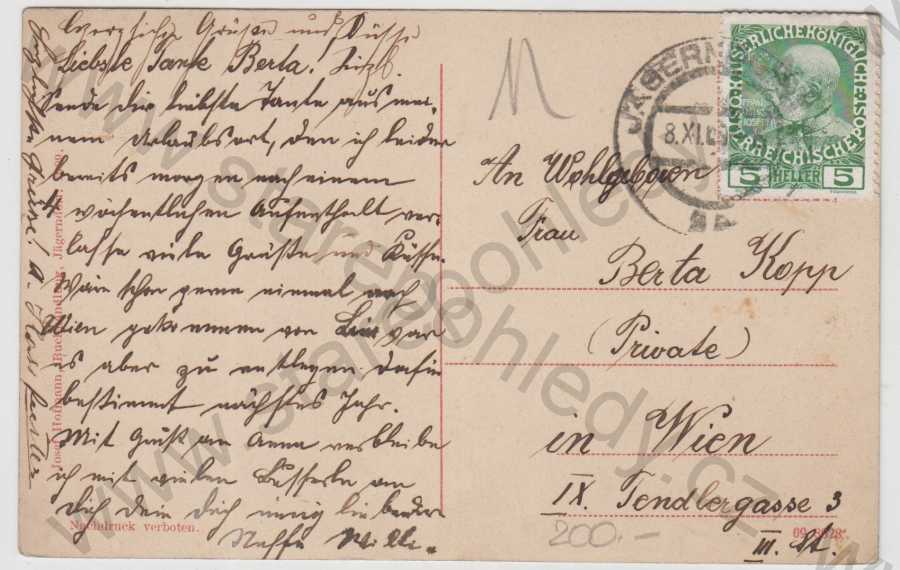 herzliche Grüße und Küsse
Liebste Tante Berta!
Sende dir liebste Tante aus mei-
nem Urlaubsort, den ich leider
bereits morgen nach einem
4 wöchentlichen Aufenthalt ver-
lasse viele Grüße und Küsse.
Wäre schon gerne einmal nach
Wien gekommen von Linz war
es aber zu entlegen. Dafür
bestimmt nächstes Jahr.
Mit Gruß an Anna verbleibe
ich mit vielen Busserln an
Dich dein Dich innig liebender
Neffe Willi.
Josef Hofmann, Buchhandlung, Jägerndorf
Nachdruck verboten.
N
JÄGERN
8.XI.09
KAISERLICHEKÖNIGLICHE
ÖSTERREICHISCHE
5 HELLER 5
An Wohlgeboren
Frau
Berta Kopp
(Private)
in Wien
IX. Tendlergasse 3
III. St.
200.-
www.starepohledy.cz